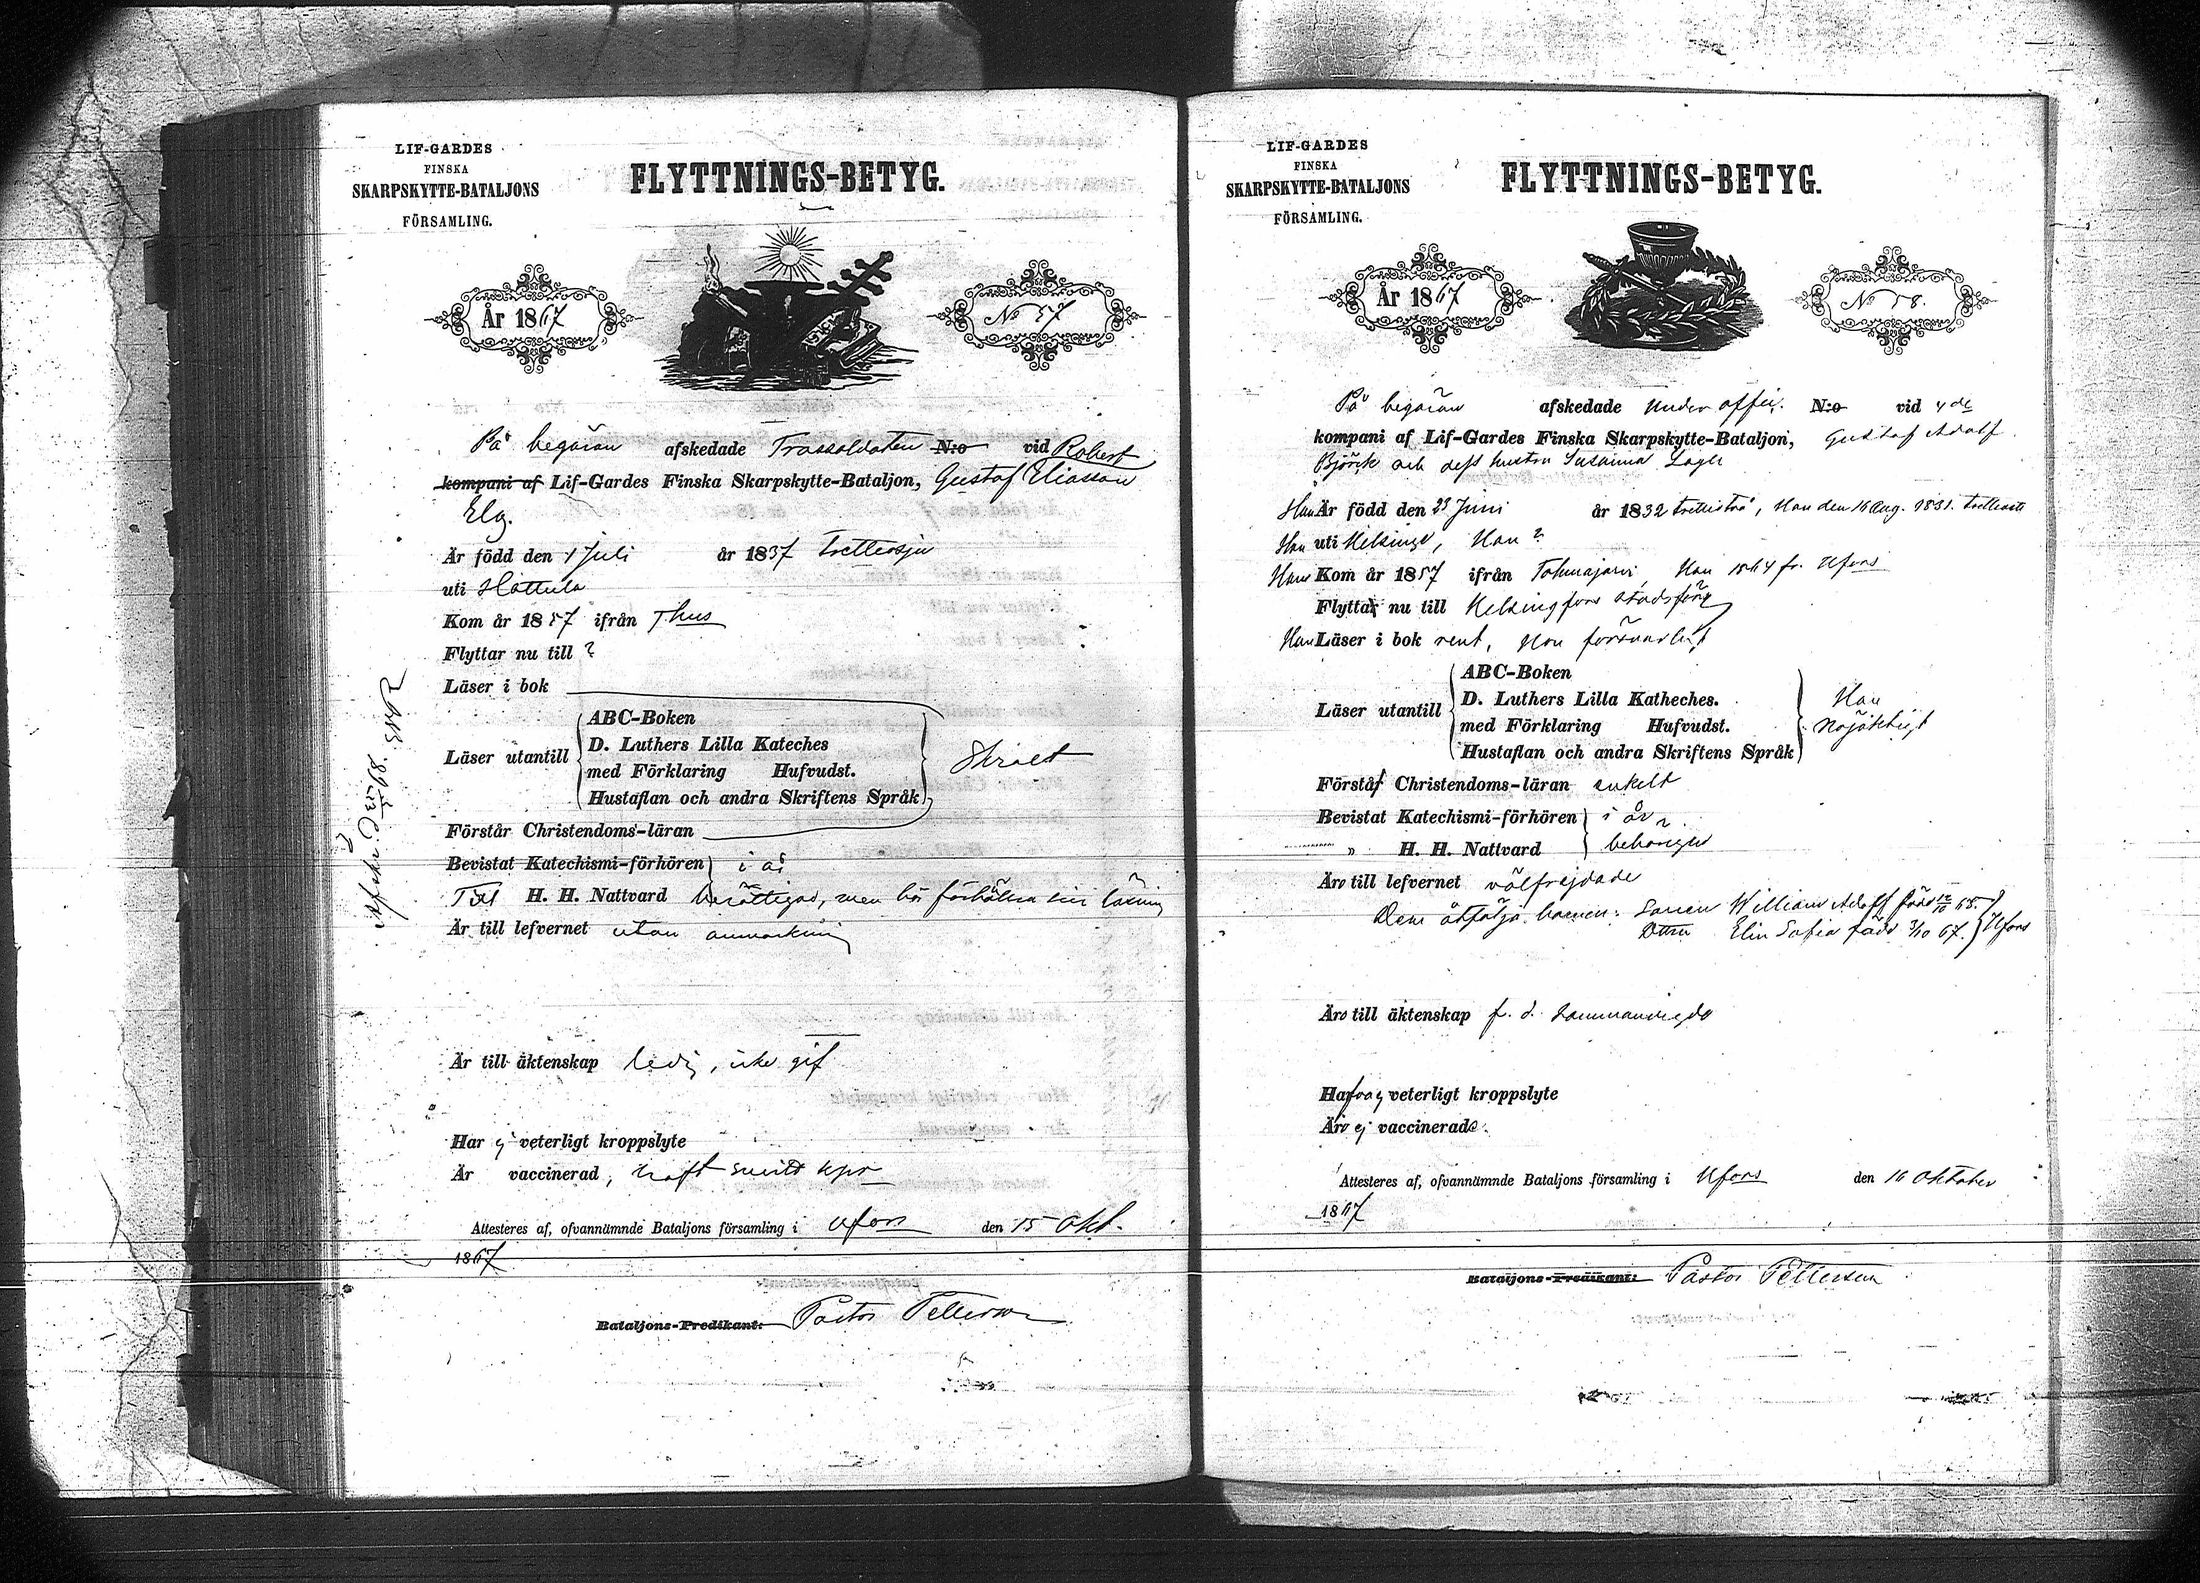 LIF-GARDES
FINSKA
SKARPSKYTTE-BATALJONS
FÖRSAMLING.
FLYTTNINGS-BETYG.
År 1867
No 57
På begäran afskedade Trossoldaten N:o vid Robert
kompani af Lif-Gardes Finska Skarpskytte-Bataljon, Gustaf Eliasson
Elg.
Är född den 1 Juli år 1837 trettiosju
uti Hattula
Kom år 1857 ifrån Thus
Flyttar nu till ?
Läser i bok
Läser utantill
ABC-Boken
D. Luthers Lilla Kateches
med Förklaring Hufvudst.
Hustaflan och andra Skriftens Språk
Förstår Christendoms-läran
Bevistat Katechismi-förhören i år
Till H. H. Nattvard berättigad, men bör förbättra sin läsning
Är till lefvernet utan anmärkning
Är till äktenskap ledig, icke gift
Har ej veterligt kroppslyte
Är vaccinerad, haft
Attesteres af, ofvannämnde Bataljons församling i Hfors den 15 Okt.
1867
Bataljons-Predikant: Pastor Pettersson
LIF-GARDES
FINSKA
SKARPSKYTTE-BATALJONS
FÖRSAMLING.
FLYTTNINGS-BETYG.
År 1867
No 58.
På begäran afskedade Under offic. N:o vid 4 de
kompani af Lif-Gardes Finska Skarpskytte-Bataljon, Gustaf Adolf
Björck och dess hustru Susanna Lager
Han Är född den 23 Juni år 1832 trettiotvå, Hon den 16 Aug. 1831. trettioett
Han uti Helsinge, Hon ?
Hans Kom år 1857 ifrån Tohmajärvi, Hon 1864 fr. Hfors
Flyttar nu till Helsingfors stadsförs
Han Läser i bok rent, Hon försvarligt
Läser utantill
ABC-Boken
D. Luthers Lilla Katheches.
med Förklaring Hufvudst.
Hustaflan och andra Skriftens Språk
Hon
Nöjaktigt
Förstå Christendoms-läran enkelt
Bevistat Katechismi-förhören i år
" H. H. Nattvard behörigen
Äro till lefvernet välfrejdade
Dem åtfölja barnen: Sonen William Adolf född 12/10 65.
Dottren Elin Sofia född 3/10 67. Hfors
Äro till äktenskap f. d. sammanvigda
Hafva ej veterligt kroppslyte
Äro ej vaccinerade.
Attesteres af, ofvannämnde Bataljons församling i Hfors den 16 Oktober
1867
Bataljons-Predikant: Pastor Pettersson